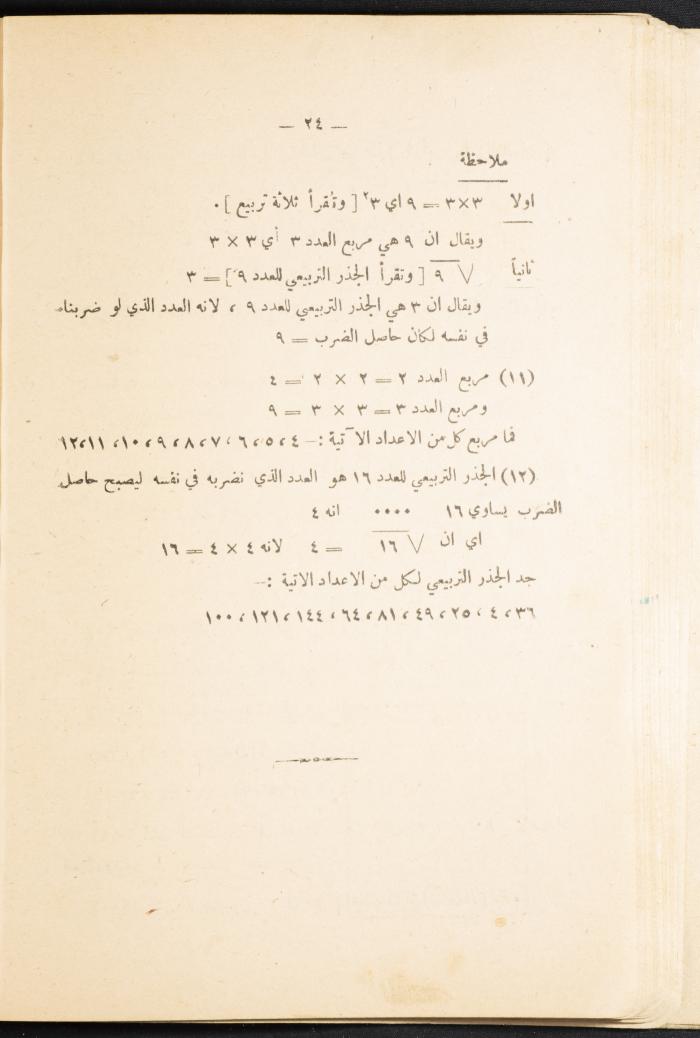 — ٢٤ —
ملاحظة
اولا ٣×٣ = ٩ اي ٣² [ وتُقرأ ثلاثة تربيع ] .
ويقال ان ٩ هي مربع العدد ٣ أي ٣ × ٣
ثانياً √٩ [ وتقرأ الجذر التربيعي للعدد ٩ ] = ٣
ويقال ان ٣ هي الجذر التربيعي للعدد ٩ ، لانه العدد الذي لو ضربناه
في نفسه لكان حاصل الضرب = ٩
(١١) مربع العدد ٢ = ٢ × ٢ = ٤
ومربع العدد ٣ = ٣ × ٣ = ٩
فما مربع كل من الاعداد الآتية :– ٤ ، ٥ ، ٦ ، ٧ ، ٨ ، ٩ ، ١٠ ، ١١ ، ١٢
(١٢) الجذر التربيعي للعدد ١٦ هو العدد الذي نضربه في نفسه ليصبح حاصل
الضرب يساوي ١٦ .... انه ٤
اي ان √١٦ = ٤ لانه ٤ × ٤ = ١٦
جد الجذر التربيعي لكل من الاعداد الاتية :–
٣٦ ، ٤ ، ٢٥ ، ٤٩ ، ٨١ ، ٦٤ ، ١٤٤ ، ١٢١ ، ١٠٠